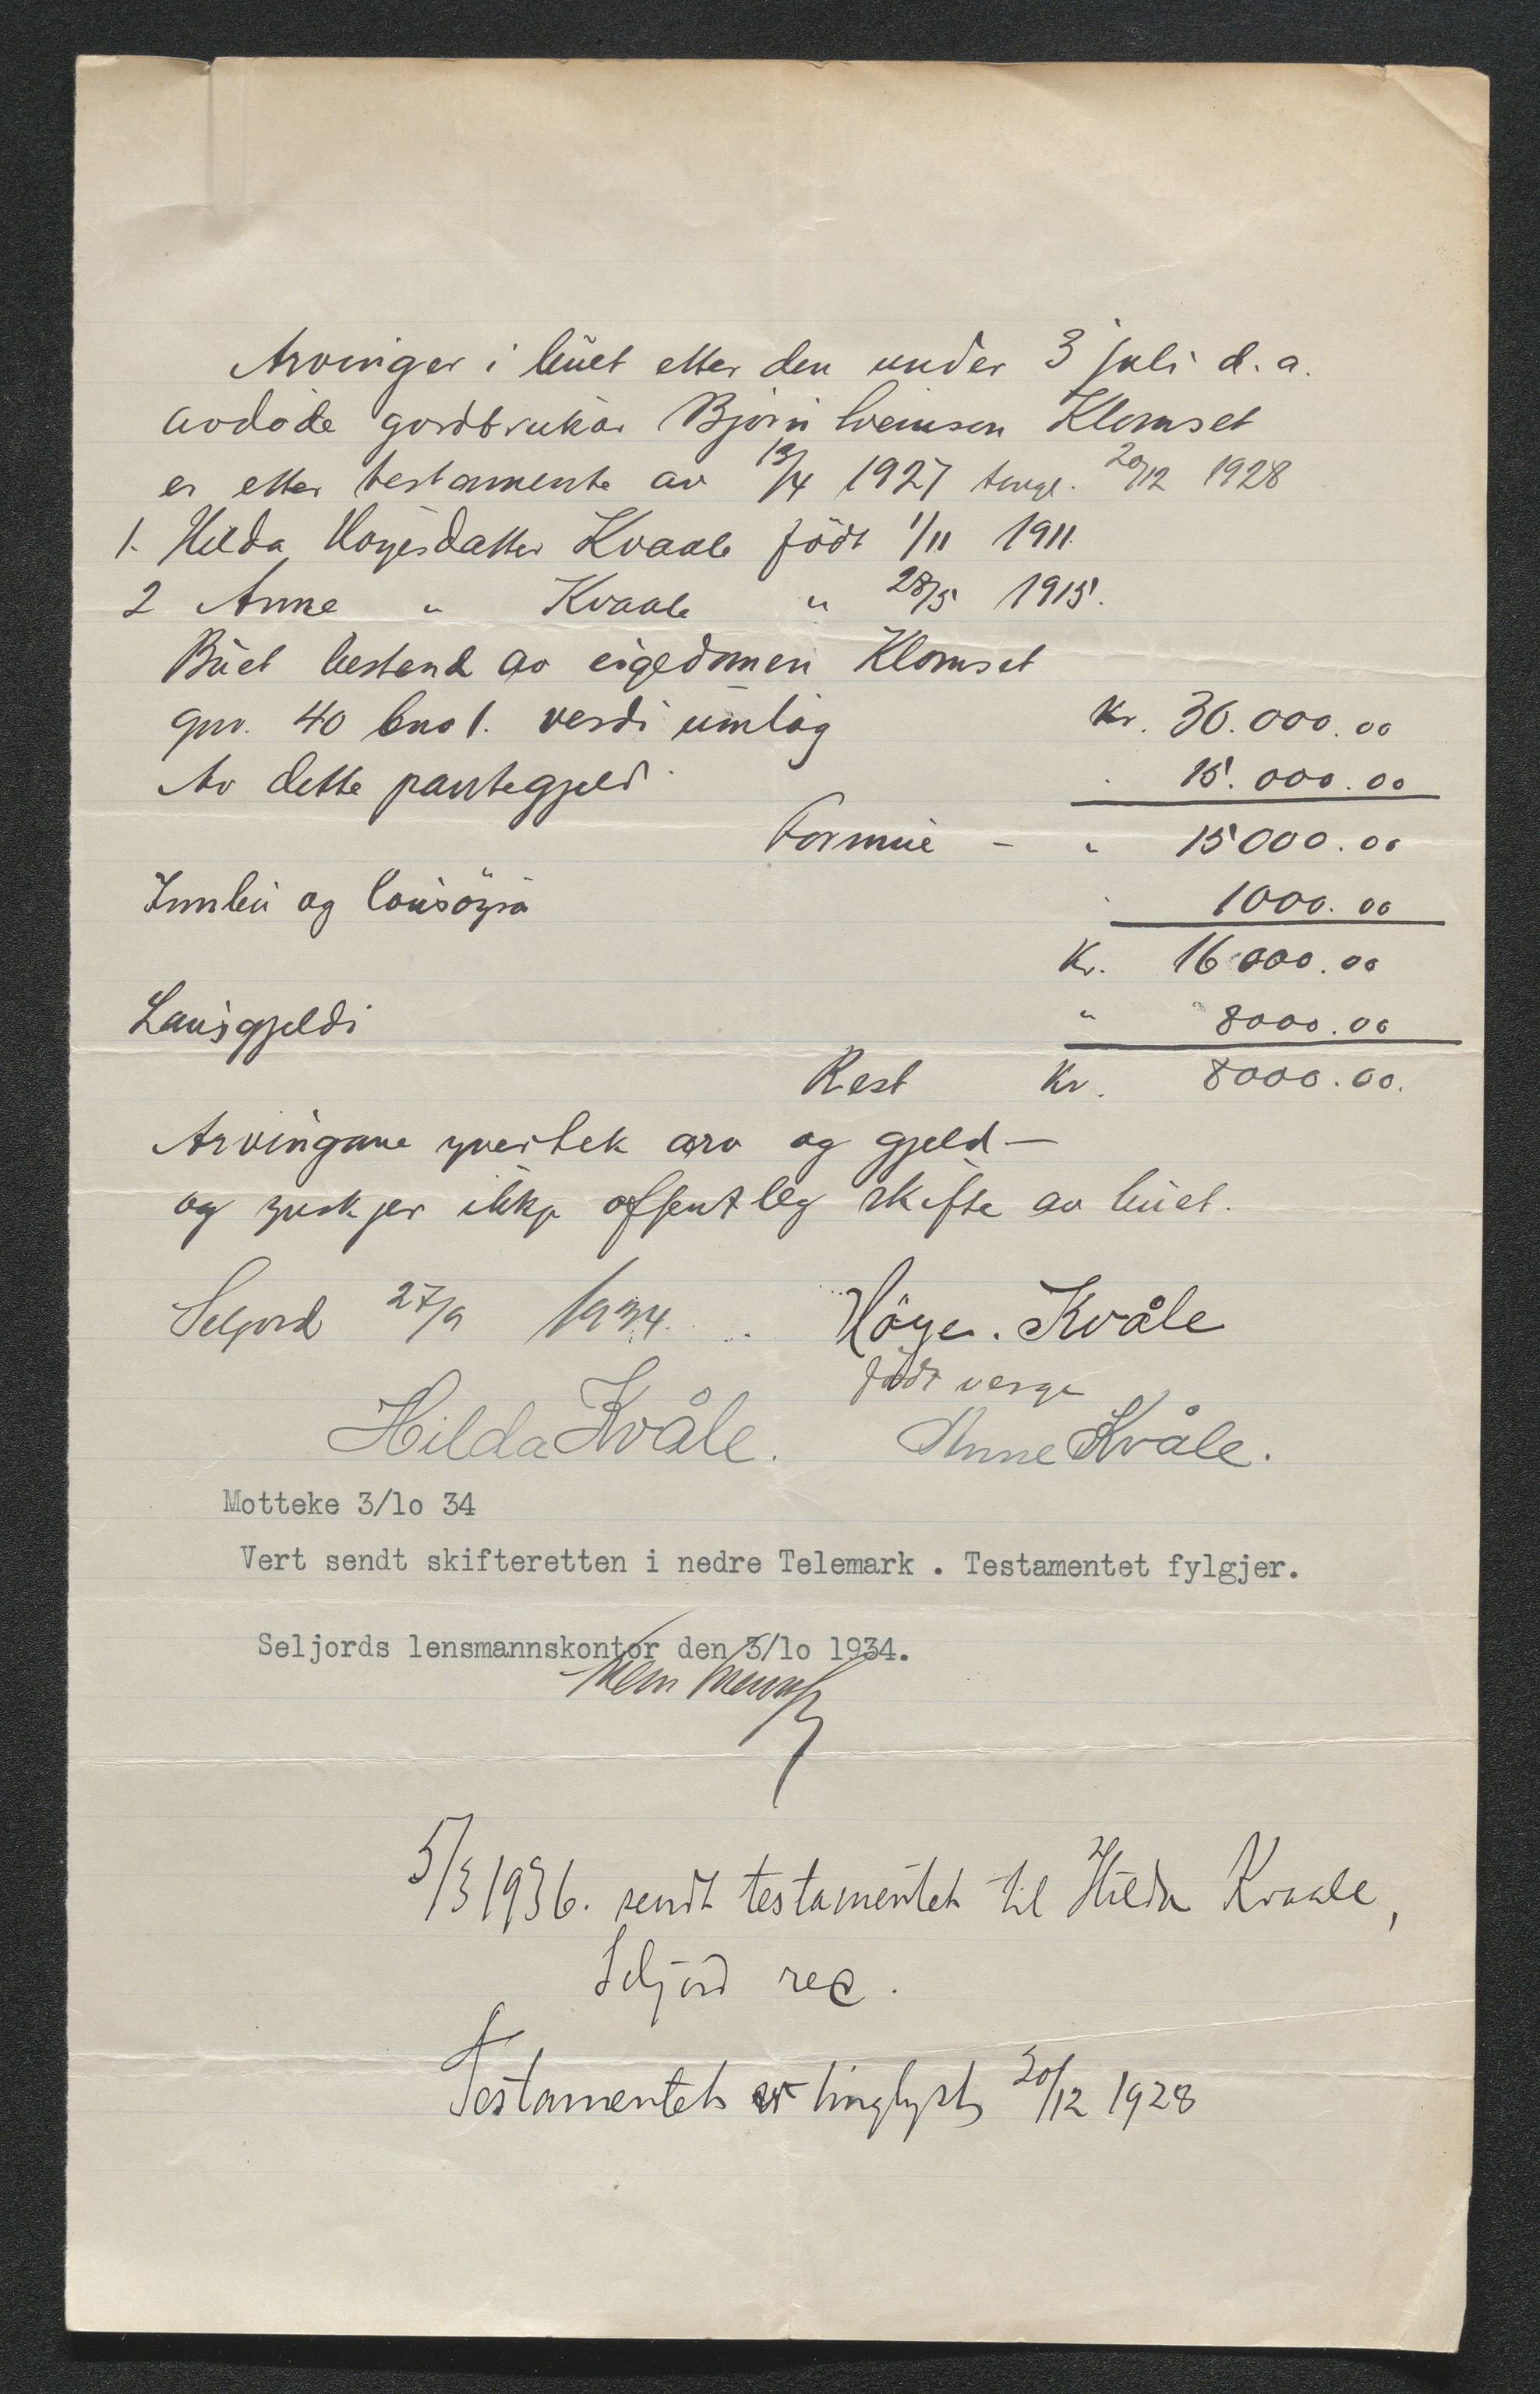 Arvinger i buet etter den under 3 juli d.a.
avdøde gardbrukar Bjørn Sveinson Klomset
er etter testamente av 13/4 1927 tingl. 20/12 1928
1. Hilda Høyesdatter Kvaale född 1/11 1911.
2 Anne " Kvaale " 28/5 1915.
Buet bestend av eigedomen Klomset
gnr. 40 bno 1. verdi umlag Kr. 30.000.00
Av dette pantegjeld 15.000.00
Formue - " 15000.00
Innbu og lausöyra 1000.00
Kr. 16000.00
Lausgjeld " 8000.00
Rest Kr. 8000.00.
Arvingane yvertek arv og gjeld —
og ynskjer ikkje offentleg skifte av buet.
Seljord 27/9 1934. Höye. Kvåle
född verge
Hilda Kvåle. Anne Kvåle.
Motteke 3/lo 34
Vert sendt skifteretten i nedre Telemark . Testamentet fylgjer.
Seljords lensmannskontor den 3/lo 1934.
5/3 1936. sendt testamentet til Hilda Kvaale,
Seljord rec.
Testamentet er tinglyst 20/12 1928